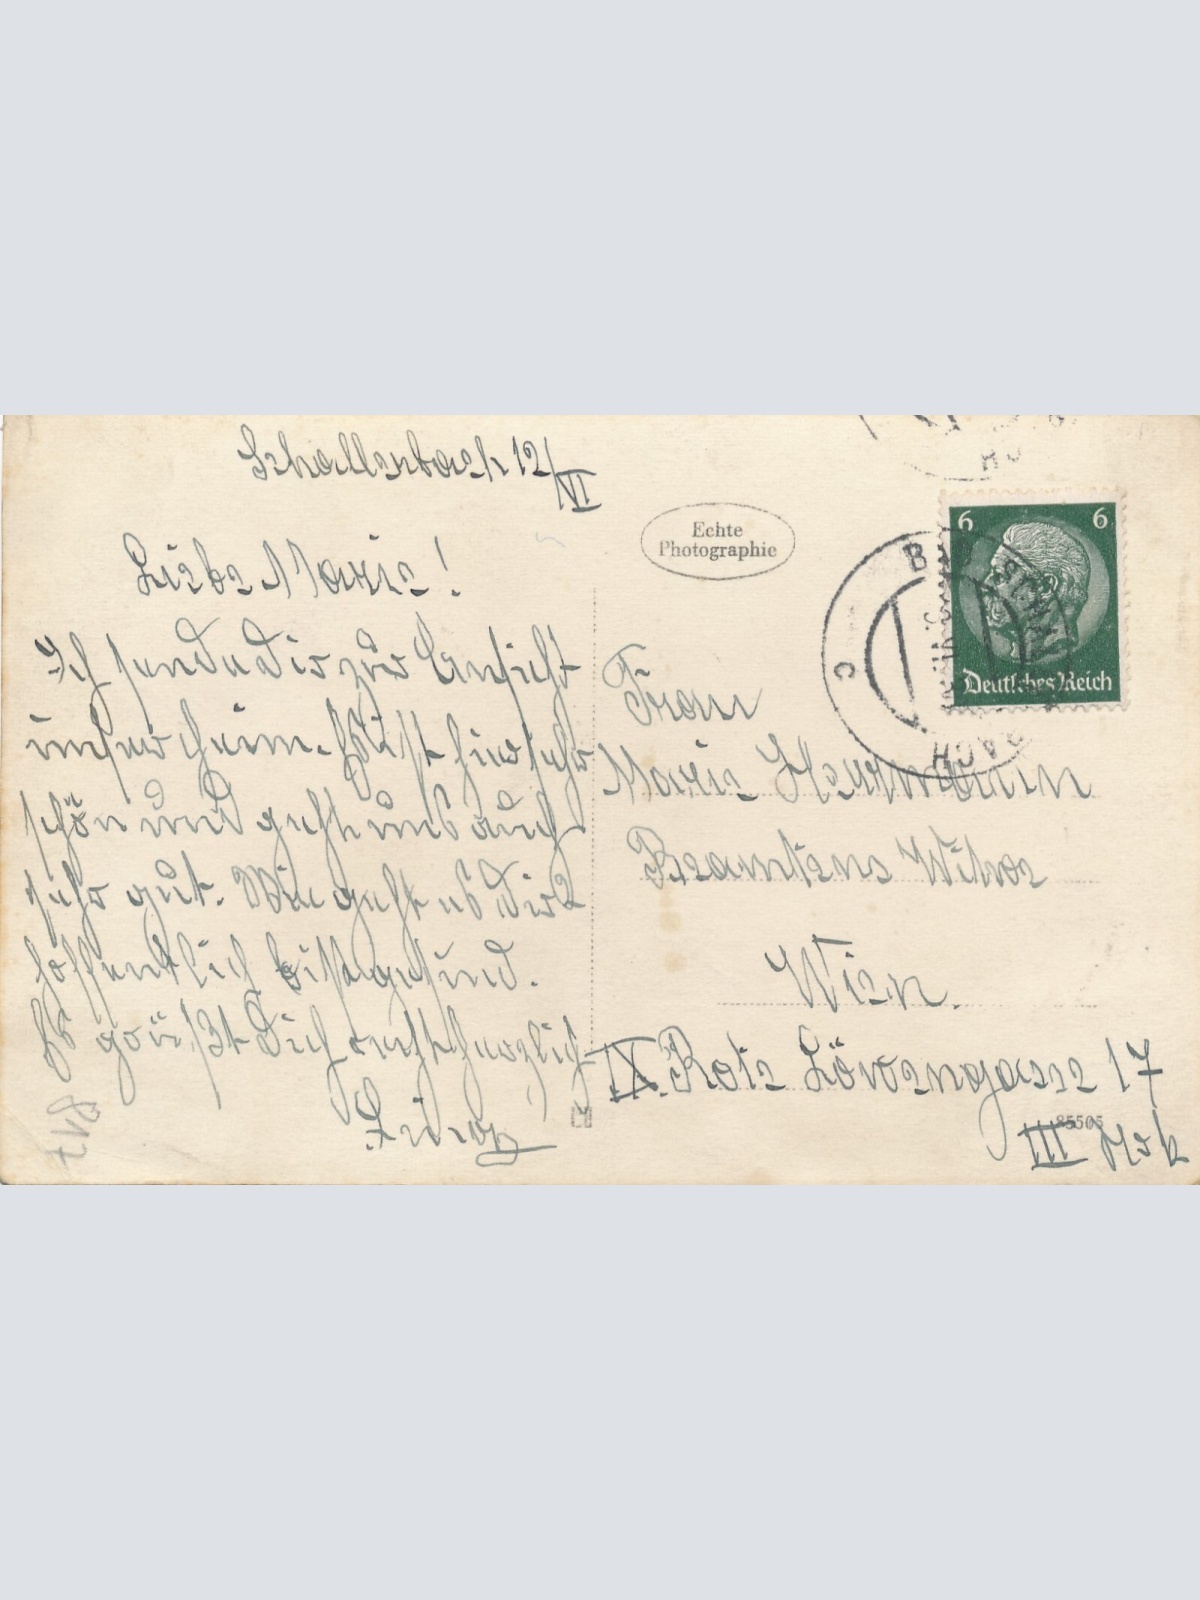 Schallerbach 12/VI
Liebe Marie!
Ich sende Dir zur Ansicht
unser Heim. Es ist hier sehr
schön und geht uns auch
sehr gut. Wie geht es Dir?
hoffentlich bist gesund.
Es grüßt Dich recht herzlich
Echte
Photographie
6 6
Deutsches Reich
BAD
C
Frau
Marie Hermann
Beamtens Witwe
Wien.
IX. Rote Löwengasse 17
85505
III